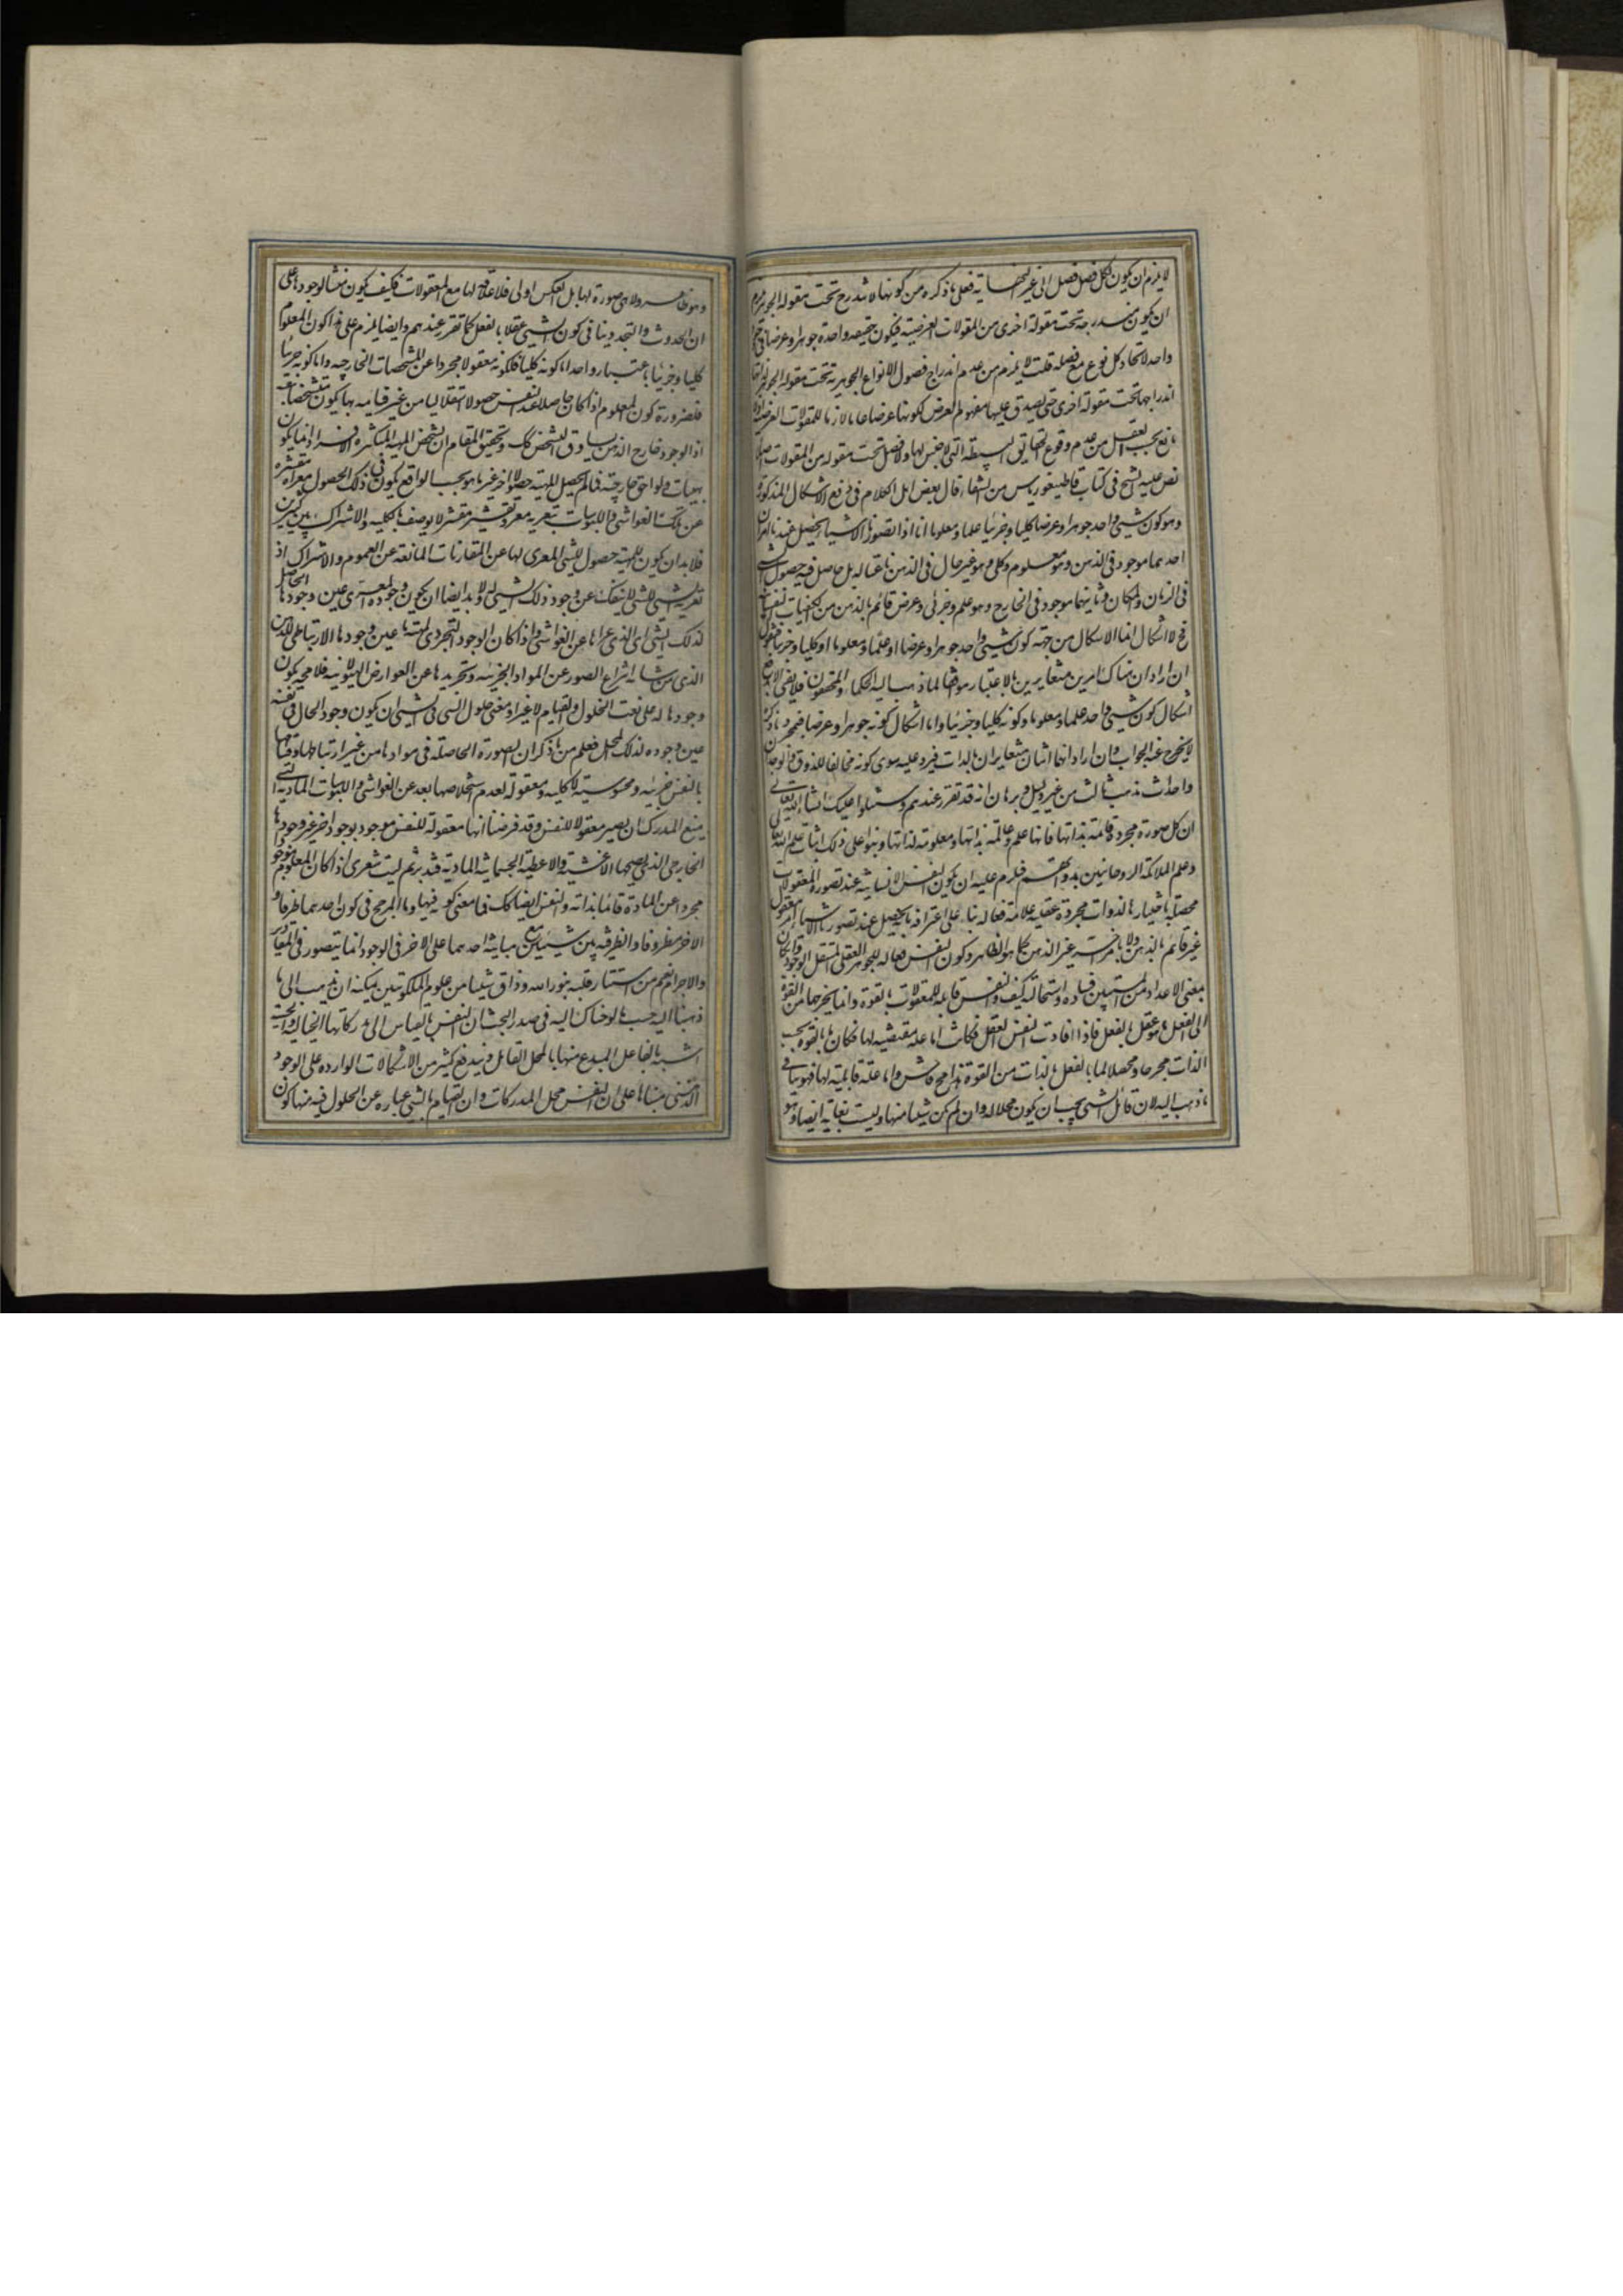 لا يلزم ان يكون لكل فصل فصل الى غير النهاية فعلى ما ذكره من كونها لا تندرج تحت مقولة الجوهر يلزم
ان يكون مندرجة تحت مقولة اخرى من المقولات العرضية فيكون حقيقة واحدة جوهرا وعرضا في
واحد لاتحاد كل نوع مع فصله قلت لا يلزم من عدم اندراج فصول الانواع الجوهرية تحت مقولة الجوهر
اندراجها تحت مقولة اخرى حتى يصدق عليها مفهوم العرض لكونها عرضا عاما لازما للمقولات العرضية
مانع بحسب العقل من عدم وقوع الحقايق البسيطة التي لا جنس لها ولا فصل تحت مقولة من المقولات
نص عليه الشيخ في كتاب قاطيغورياس من الشفا قال بعض اهل الكلام في دفع الاشكال المذكور
وهو كون شيئ واحد جوهرا وعرضا كليا وجزئيا علما ومعلوما انا اذا تصورنا الاشياء يحصل عندنا امران
احدهما موجود في الذهن وهو معلوم وكلي وهو غير حال في الذهن ناعتا له بل حاصل فيه حصول الشيئ
في الزمان والمكان وثانيهما موجود في الخارج وهو علم وجزئي وعرض قائم بالذهن من الكيفيات النفسانية
فح لا اشكال انما الاشكال من جهة كون شيئ واحد جوهرا وعرضا او علما ومعلوما او كليا وجزئيا فنقول
ان اراد ان هناك امرين متغايرين بالاعتبار موافقا لما ذهب اليه الحكماء والمحققون فلا يفي
اشكال كون شيئ واحد علما ومعلوما وكونه كليا وجزئيا واما اشكال كونه جوهرا وعرضا فبمجرد ما ذكره
لا يخرج عنه الجواب وان اراد انهما اثنان متغايران بالذات فيرد عليه سوى كونه مخالفا للذوق والوجدان
واحداث مذهب ثالث من غير دليل وبرهان انه قد تقرر عندهم وسنتلوا عليك انشاء الله تعالى
ان كل صورة مجردة قائمة بذاتها فانها علم وعالمة بذاتها ومعلومة لذاتها وبنوا على ذلك اثبات علم الله تعالى
وعلم الملائكة الروحانيين بذواتهم فلزم عليه ان يكون النفس الانسانية عند تصور المعقولات
محصلة باختيارها لذوات مجردة عقلية علامة فعالة بناء على اعترافه بانه يحصل عند تصورنا الاشياء امر معقول
غير قائم بالذهن ولا بامر اخر غير الذهن كما هو الظاهر وكون النفس فعالة للجوهر العقلي المستقل الوجود
بمعنى الاعداد لمن فساده واستحالته كيف والنفس قابلة للمعقولات بالقوة وانما يخرجها من القوة
الى الفعل ما هو عقل بالفعل فاذا افادت النفس العقل فكانت اما علة مقتضية لها فكان ما بالقوة بحسب
الذات مخرجا ومحصلا لما بالفعل بالذات من القوة هذا مح فاحش واما علة قابلية لها فهو ينافي
ما ذهب اليه لان قابل الشيئ يجب ان يكون محلا له وان لم يكن شيئا منها وليست بغاية ايضا وهو
وهو ظاهر ولا هي صورة لها بل العكس اولى فلا علاقة لها مع المعقولات فكيف يكون منشأ لوجودها على
ان الحدوث والتجدد ينافي كون الشيئ عقلا بالفعل كما تقرر عندهم وايضا يلزم على هذا كون المعلوم
كليا وجزئيا باعتبار واحد اما كونه كليا فلكونه معقولا مجردا عن المشخصات الخارجية واما كونه جزئيا
فلضرورة كون المعلوم اذا كان حاصلا عند النفس حصولا استقلاليا من غير قيامه بها يكون متشخصا
اذ الوجود خارج الذهن يساوق التشخص كك وتحقيق المقام ان تشخص المهية المتكثرة الافراد انما يكون
بهيات ولواحق خارجية فما لم يحصل للمهية حصولا اخر غير ما هو بحسب الواقع يكون في ذلك الحصول معراة متقشرة
عن تلك الغواشي واللبوسات بتعرية معر وتقشير مقشر لا يوصف بالكلية والاشتراك بين كثيرين
فلا بد ان يكون للمهية حصول للشيئ المعري لها عن المقارنات المانعة عن العموم والاشتراك اذ
تعرية الشيئ للشيئ لا ينفك عن وجود ذلك الشيئ له ولا بد ايضا ان يكون وجوده المعري عين وجودها الحاصل
لذلك الشيئ اي الذي عراها عن الغواشي واذا كان الوجود التجردي لمهية ما عين وجودها الارتباطي للذهن
الذي من شانه انتزاع الصور عن المواد الجزئية وتجريدها عن العوارض الهيولانية فلا محة يكون
وجودها له على نعت الحلول والقيام لا غير اذ معنى حلول الشيئ في شيئ ان يكون وجود الحال في نفسه
عين وجوده لذلك المحل فعلم من ما ذكر ان الصورة الحاصلة في موادها من غير ارتباطها وقيامها
بالنفس جزئية ومحسوسة لا كلية ومعقولة لعدم استخلاصها بعد عن الغواشي واللبوسات المادية التي
يمنع المدرك ان يصير معقولا للنفس وقد فرضنا انها معقولة للنفس موجود بوجود اخر غير وجودها
الخارجي الذي يصحبها الاغشية والاغطية الجسمانية المادية فتدبر ثم ليت شعري اذا كان المعلوم موجودا
مجردا عن المادة قائما بذاته والنفس ايضا كك فما معنى كونه فيها وما المرجح في كون احدهما ظرفا و
الاخر مظروفا والظرفية بين شيئين مع مباينة احدهما على الاخر في الوجود انما يتصور في المقادير
والاجرام نعم من استنار قلبه بنور الله وذاق شيئا من علوم الملكوتيين يمكنه ان يذهب الى ما
ذهبنا اليه حسب ما لوحناك اليه في صدر المبحث ان النفس بالقياس الى مدركاتها الخيالية والحسية
اشبه بالفاعل المبدع منها بالمحل القابل وبه يندفع كثير من الاشكالات الواردة على الوجود
الذهني مبناها على ان النفس محل المدركات وان القيام بالشيئ عبارة عن الحلول فيه منها كون